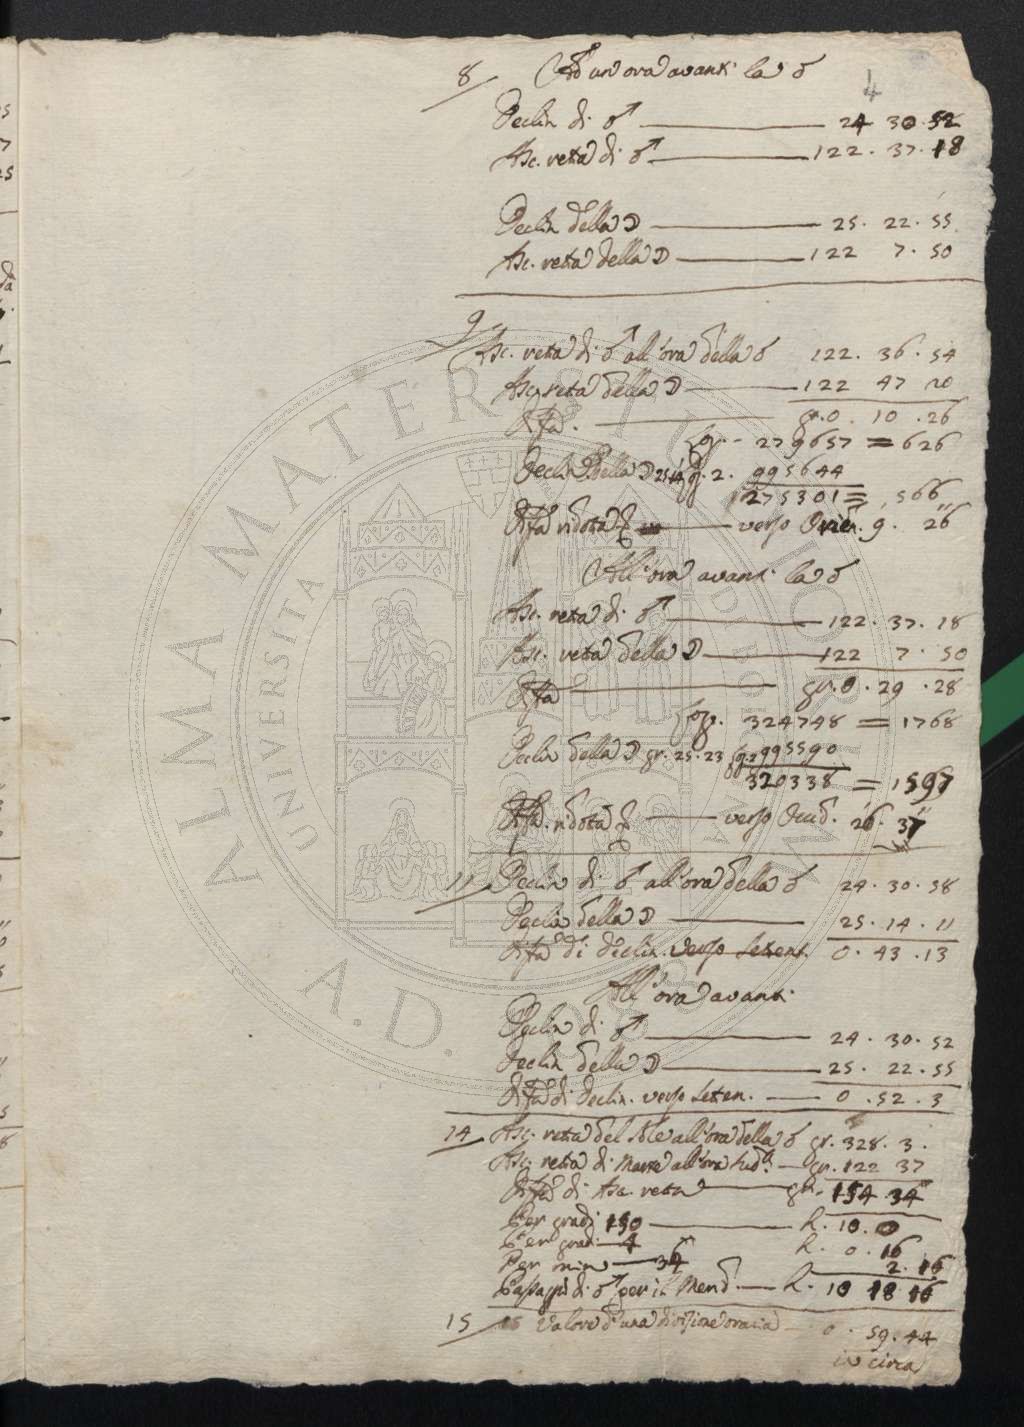 4
8 Ad un ora avanti la ☌
Declin di ♂ 24 30. 52
Asc. retta di ♂ 122. 37. 18
Declin della ☽ 25. 22. 55
Asc. retta della ☽ 122 7. 50
9
Asc. retta di ♂ all'ora della ☌ 122. 36. 54
Asc. retta della ☽ 122 47 20
Diffa. gr. 0. 10. 26
Log. 279657 = 626
Declin della ☽ 25.14 Log. 2. 995644
275301 = 566
Diffa ridotta verso Orien. 9. 26
All'ora avanti la ☌
Asc. retta di ♂ 122. 37. 18
Asc. retta della ☽ 122 7. 50
Diffa gr. 0. 29. 28
Log. 324748 = 1768
Declin della ☽ gr. 25. 23 Lg. 2 995590
320338 = 1597
Diffa. ridotta verso Occid. 26. 37
11 Declin di ♂ all'ora della ☌ 24. 30. 58
Declin della ☽ 25. 14. 11
Diffa di declin. verso Setten. 0. 43. 13
All'ora avanti
Declin di ♂ 24. 30. 52
Declin della ☽ 25. 22. 55
Diffa di declin. verso Setten. 0. 52. 3
14 Asc. retta del Sole all'ora della ☌ gr. 328. 3.
Asc. retta di Marte all'ora suda. gr. 122 37
Diffa di Asc. retta gr. 154 34
Per gradi 150 h. 10. 0
Per gradi 4 h. 0. 16
Per min 34 2. 16
Passaggio di ♂ per il Merid. h. 10 18 16
15 Valore d'una divisione oraria 0. 59. 44
in circa
ALMA MATER STUDIORUM
UNIVERSITÀ DI BOLOGNA
A.D. 1088